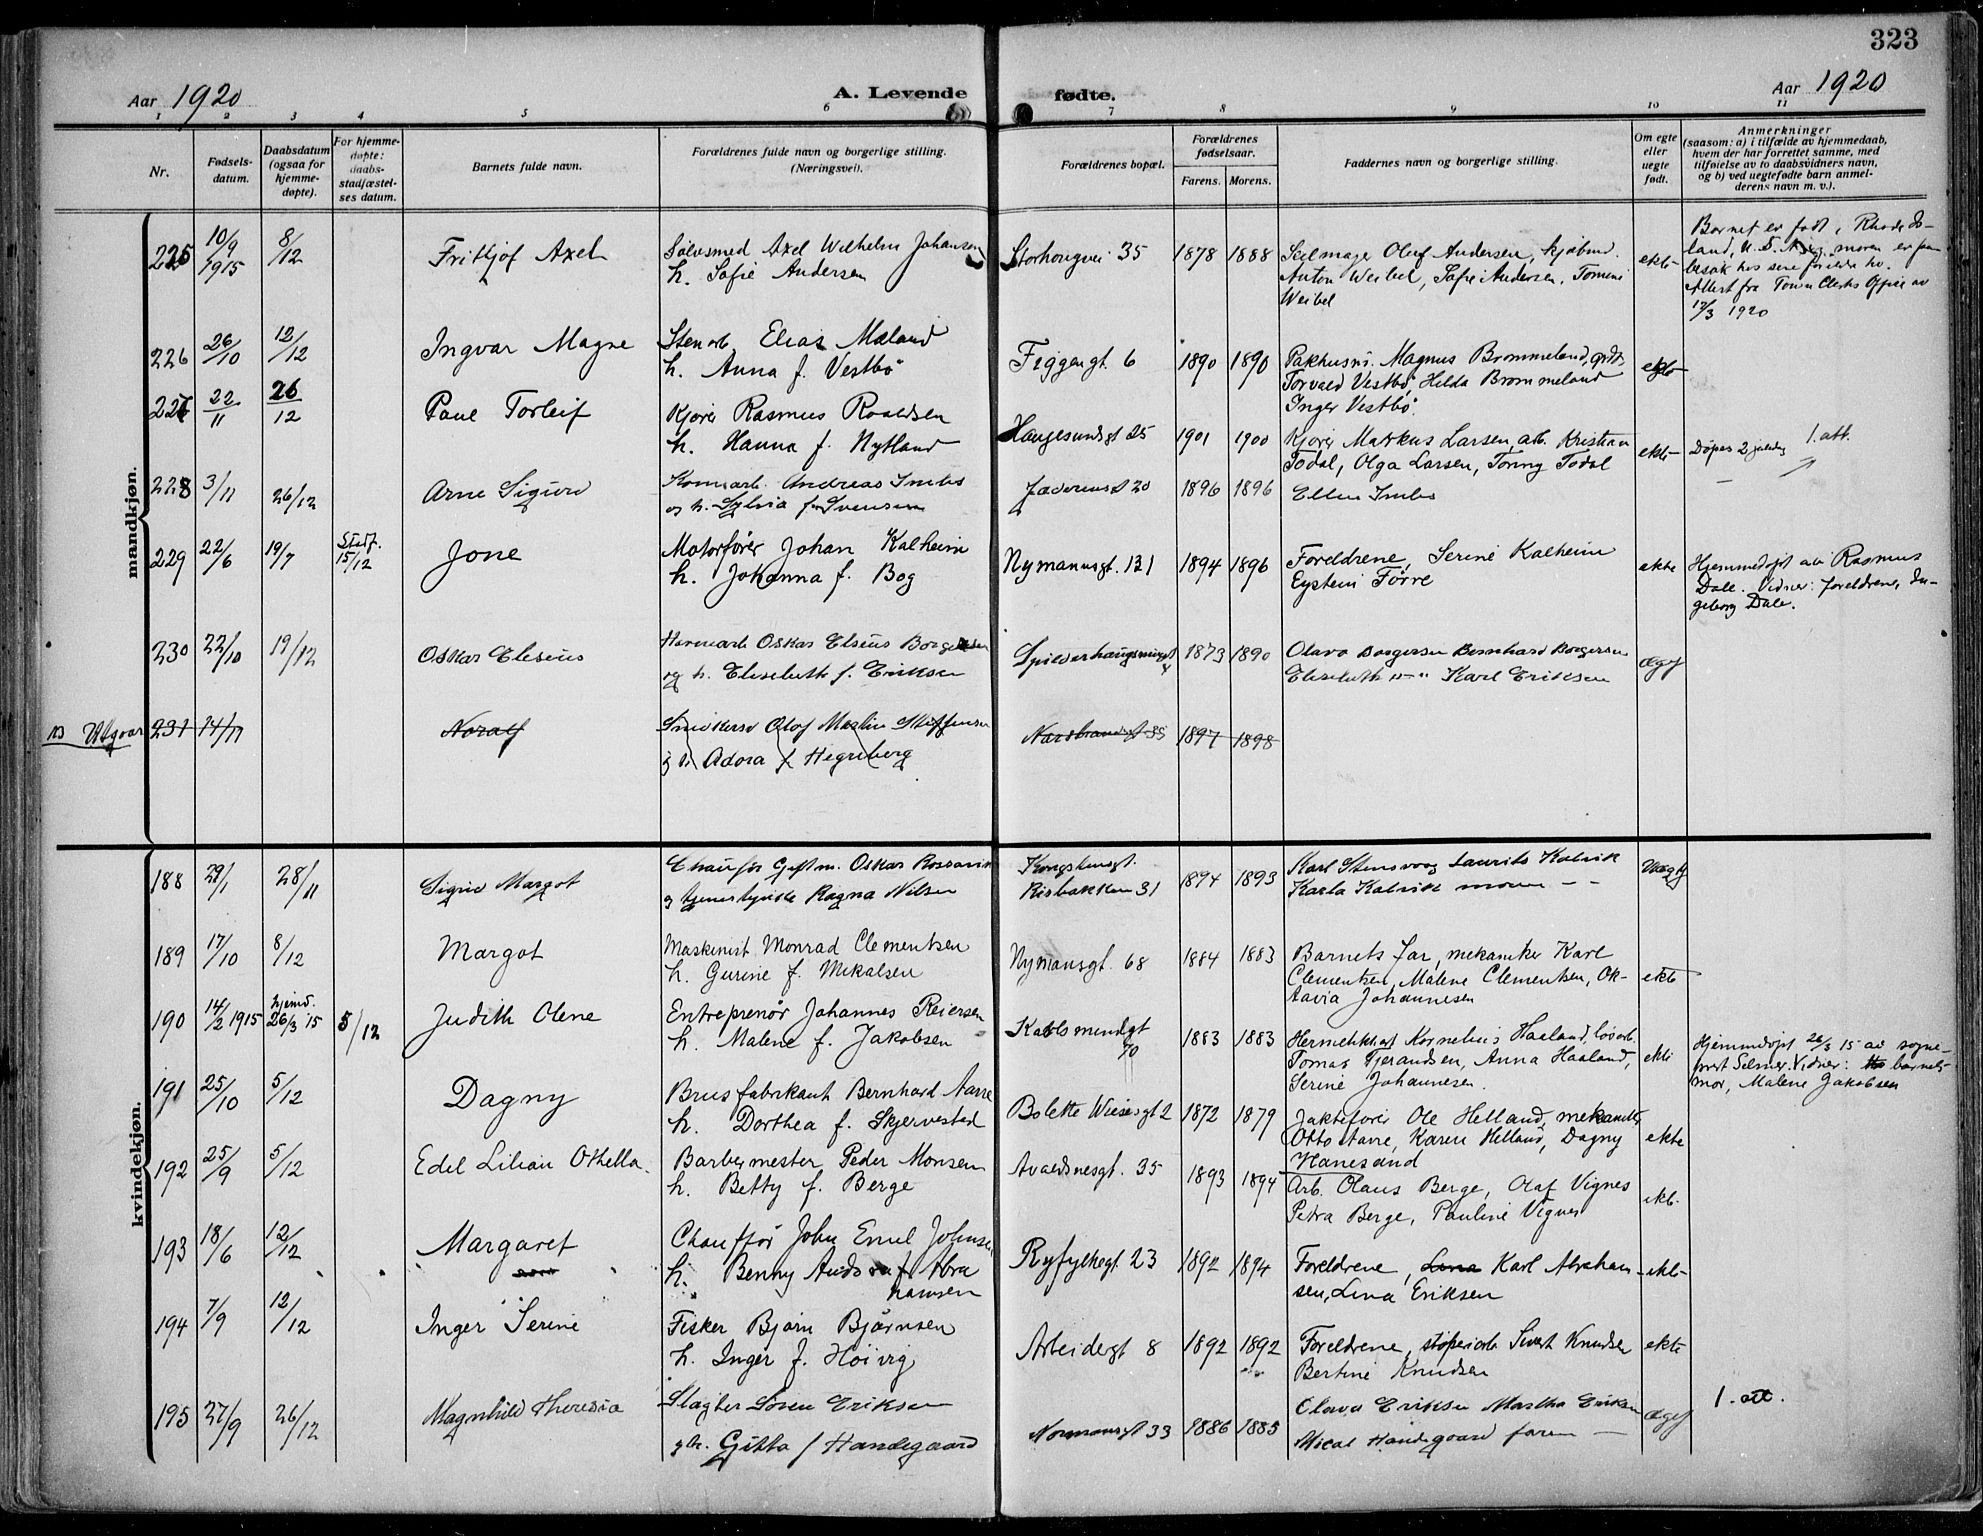 323
Aar 1920 A. Levende fødte. Aar 1920
1 2 3 4 5 6 7 8 9 10 11
Nr.
Fødsels-
datum.
Daabsdatum
(ogsaa for
hjemme-
døpte).
For hjemme-
døpte:
daabs-
stadfæstel-
ses datum.
Barnets fulde navn.
Forældrenes fulde navn og borgerlige stilling.
(Næringsvei).
Forældrenes bopæl.
Forældrenes
fødselsaar.
Farens. Morens.
Faddernes navn og borgerlige stilling.
Om egte
eller
uegte
født.
Anmerkninger
(saasom: a) i tilfælde av hjemmedaab,
hvem der har forrettet samme, med
tilføielse av to daabsvidners navn,
og b) ved uegtefødte barn anmel-
derens navn m. v.).
mandkjøn.
225 10/9 1915 8/12 Fritjof Axel
Sølvsmed Axel Wilhelm Johansen
h. Sofie Andersen
Storhougvei 35 1878 1888
Seilmager Oluf Andersen, kjøbmd.
Anton Weibel, Sofie Andersen, Tomine
Weibel
ekte
Barnet er født i Rhode Is-
land, U.S.A, moren er paa
besøk hos sine foreldre
Attest fra Town Clerks Office av
12/3 1920
226 26/10 12/12 Ingvar Magne
Stenarb Elias Mæland
h. Anna f. Vestbø
Figgengt. 6 1890 1890
Pakhusm. Magnus Brommeland,
Torvald Vestbø, Hilda Brommeland
Inger Vestbø.
ekte
227 22/11 26/12 Paul Torleif
Kjører Rasmus Roaldsen
h. Hanna f. Nytland
Haugesundsgt 25 1901 1900
Kjører Markus Larsen, arb. Kristian
Todal, Olga Larsen, Tonny Todal
ekte
Døpes 2 juledag 1. att.
228 3/11 26/12 Arne Sigurd
Andreas
og h. Sylvia f. Svensen
Jæderensgt 20 1896 1896
Ellen
229 22/6 19/7 Stadf. 15/12 Jone
Motorfører Johan Kalheim
h. Johanna f. Bog
Nymannsgt. 131 1894 1896
Foreldrene, Serine Kalheim
Eystein Førre
ekte
Hjemmedøpt av Rasmus
Dale. Vidner: foreldrene, In-
geborg Dale.
230 22/10 19/12 Oskar Elesius
Havnearb Oskar Elseus Borgersen
og h. Eleseluth f. Eriksen
1873 1890
Olava Borgersen Bernhard Borgersen
Eleseluth -"- Karl Eriksen
NB Utgaar 231 14/11 Noralf
Olaf Martin Steffensen
og h. Adora f Hegreberg
Nordbraudgt 35 1897 1898
kvindekjøn.
188 29/1 28/11 Sigrid Margot
Chaufør Gift m. Oskar Rossavik
og tjenestpike Ragna Nilsen
Kongstensgt.
Risbakken 31 1894 1893
Karl Stensvoag Laurits Kalvik
Karla Kalvik moren - -
Uægt
189 17/10 8/12 Margot
Maskinist Monrad Clementsen
h. Gurine f. Mikalsen
Nymansgt. 68 1884 1883
Barnets far, mekaniker Karl
Clementsen, Malene Clementsen, Ok-
tavia Johannesen
ekte
190 14/2 1915 hjemd. 26/3 15 5/12 Judith Olene
Entreprenør Johannes Reiersen
h. Malene f. Jakobsen
Karlsmindegt
70 1883 1883
Kornelius Haaland, løsarb.
Tomas Tjerandsen, Anna Haaland,
Serine Johannesen.
ekte
Hjemmedøpt 26/3 15 av sogne-
prest Selmer. Vidner: barnets
mor, Malene Jakobsen
191 25/10 5/12 Dagny
Brusfabrikant Bernhard Aarre
h. Dorthea f. Skjervestad
Bolette Wiesesgt 2 1872 1879
Jaktefører Ole Helland, mekaniker
Otto Aarre, Karen Helland, Dagny
Hanesand
ekte
192 25/9 5/12 Edel Lilian Othella.
Barbermester Peder Monsen
h. Betty f. Berge
Avaldsnesgt. 35 1893 1894
Arb. Olaus Berge, Olaf Vignes
Petra Berge, Pauline Vignes
ekt.
193 18/6 12/12 Margaret
Chauffør John Emil Johnsen
h. Benny f. Abra
hamsen
Ryfylkegt. 23 1892 1894
Foreldrene, Lina Karl Abraham-
sen, Lina Eriksen
ekte
194 7/9 12/12 Inger Serine
Fisker Bjørn Bjørnsen
h. Inger f. Høivig
Arbeidergt 8 1892 1892
Foreldrene, støperiarb Sivert Knudsen
Bertine Knudsen
ekte
195 27/9 26/12 Magnhild Theresia
Slagter Søren Eriksen
og h. Gitta f Handegaard
Normansgt 33 1886 1885
Olava Eriksen Martha Eriksen
Mical Handegaard faren -
1. att.